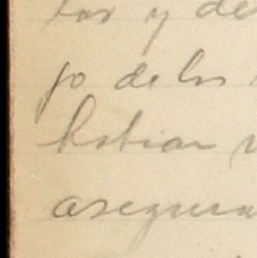 tor y de
jo de los
habian
asegura